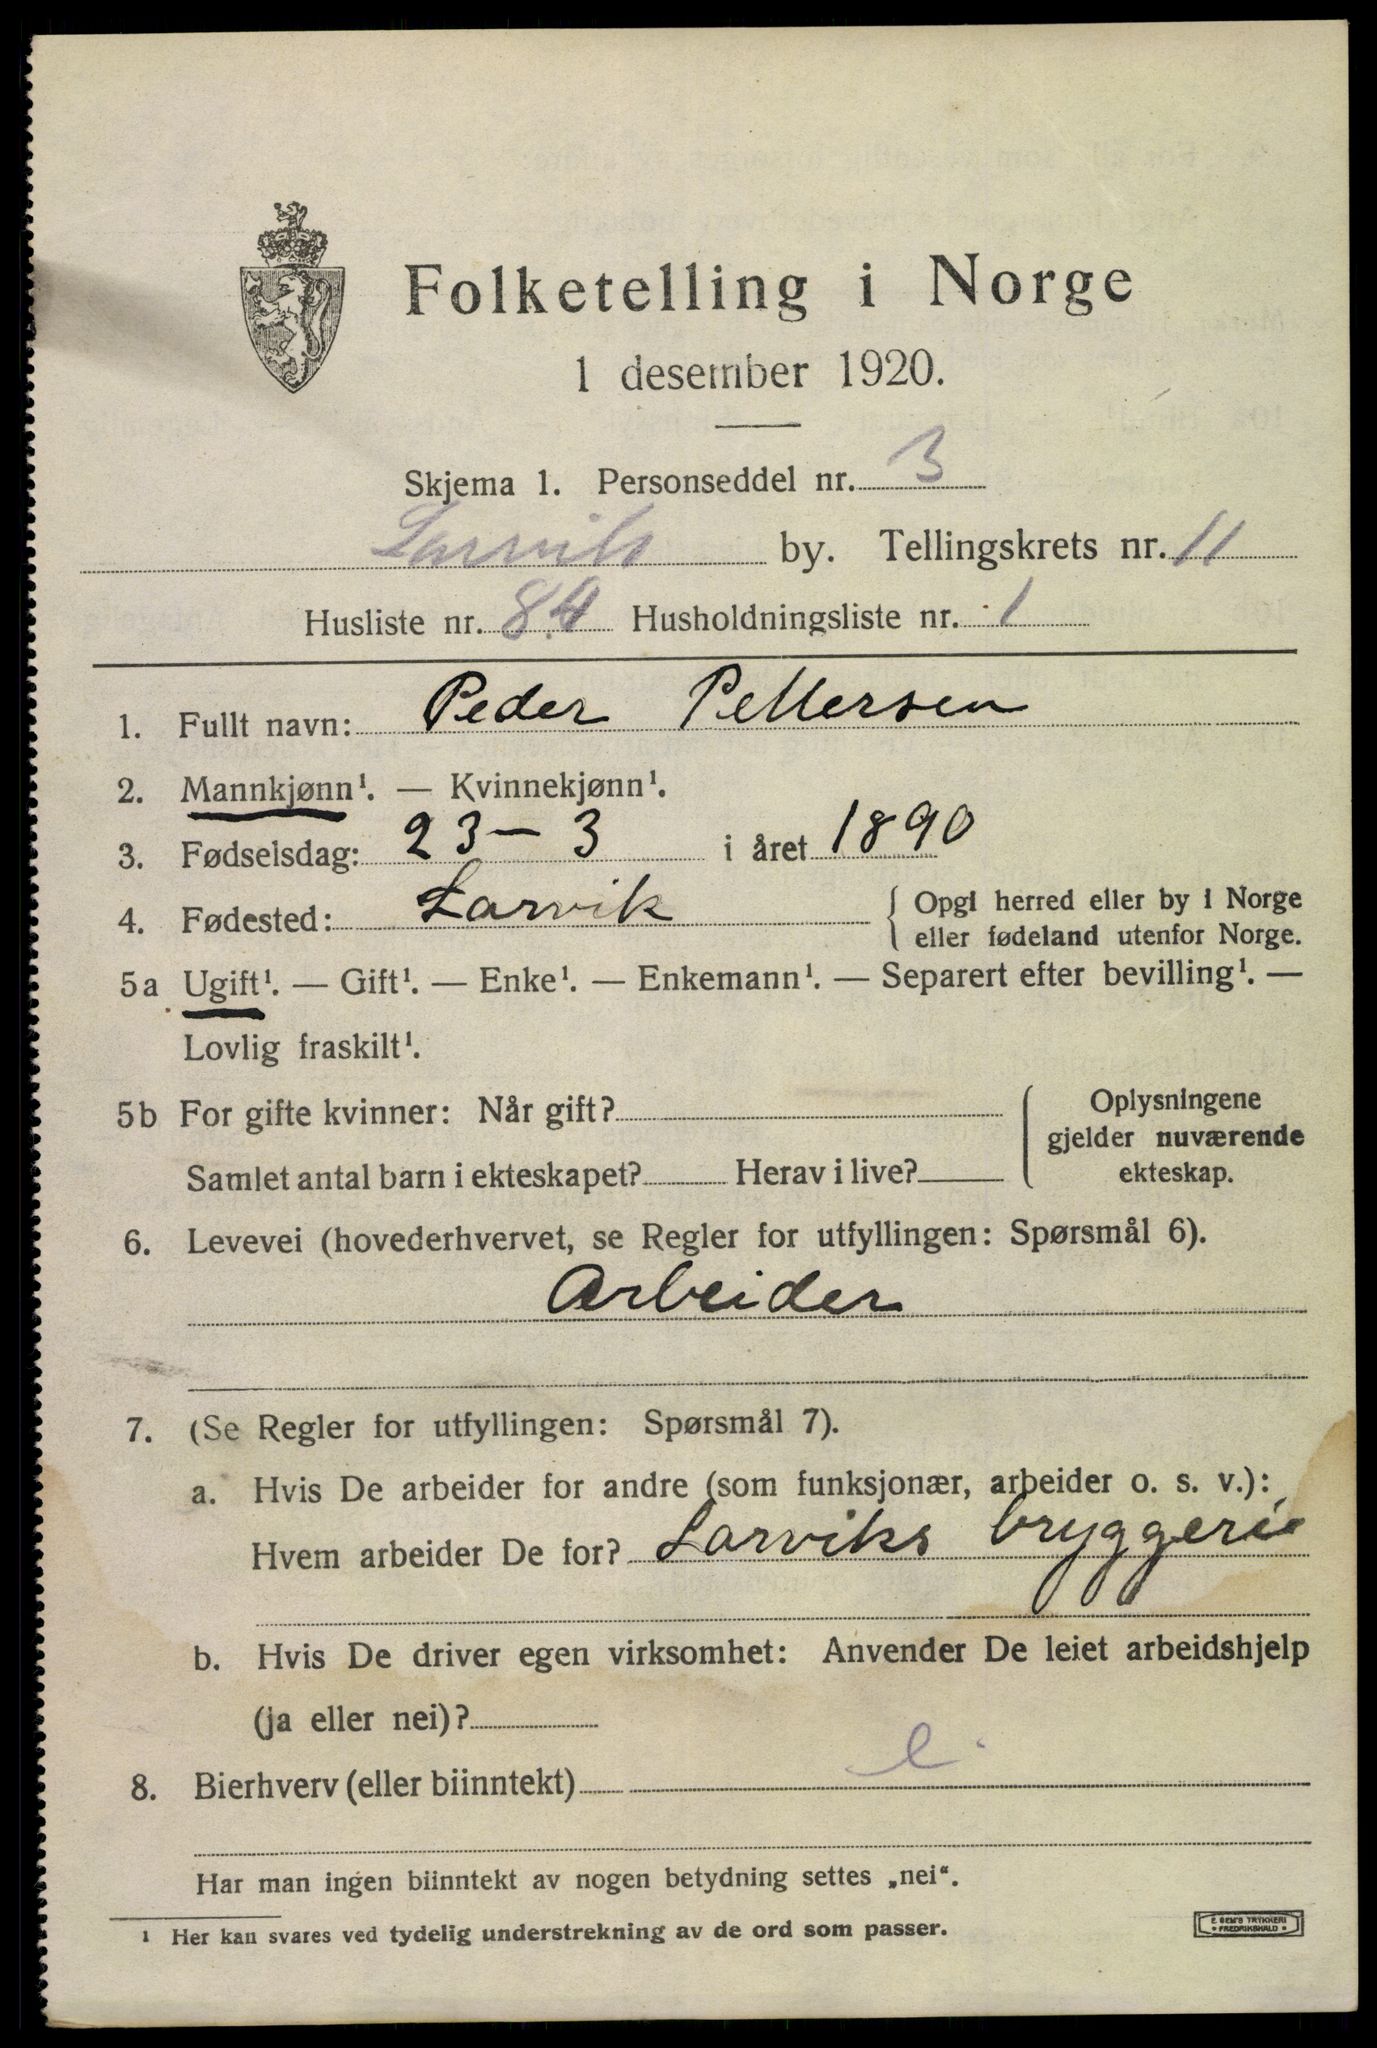 Folketelling i Norge
1 desember 1920.
Skjema 1. Personseddel nr. 3
Larvik by. Tellingskrets nr. 11
Husliste nr. 84 Husholdningsliste nr. 1
1. Fullt navn: Peder Pettersen
2. Mannkjønn¹. — Kvinnekjønn¹.
3. Fødselsdag: 23 – 3 i året 1890
4. Fødested: Larvik { Opgi herred eller by i Norge
eller fødeland utenfor Norge.
5a Ugift¹. — Gift¹. — Enke¹. — Enkemann¹. — Separert efter bevilling¹. —
Lovlig fraskilt¹.
5b For gifte kvinner: Når gift? { Oplysningene
gjelder nuværende
Samlet antal barn i ekteskapet? Herav i live? ekteskap.
6. Levevei (hovederhvervet, se Regler for utfyllingen: Spørsmål 6).
Arbeider
7. (Se Regler for utfyllingen: Spørsmål 7).
a. Hvis De arbeider for andre (som funksjonær, arbeider o. s. v.):
Hvem arbeider De for? Larviks bryggeri
b. Hvis De driver egen virksomhet: Anvender De leiet arbeidshjelp
(ja eller nei)?
8. Bierhverv (eller biinntekt)
Har man ingen biinntekt av nogen betydning settes „nei“.
¹ Her kan svares ved tydelig understrekning av de ord som passer.
E. SEM'S TRYKKERI
FREDRIKSHALD